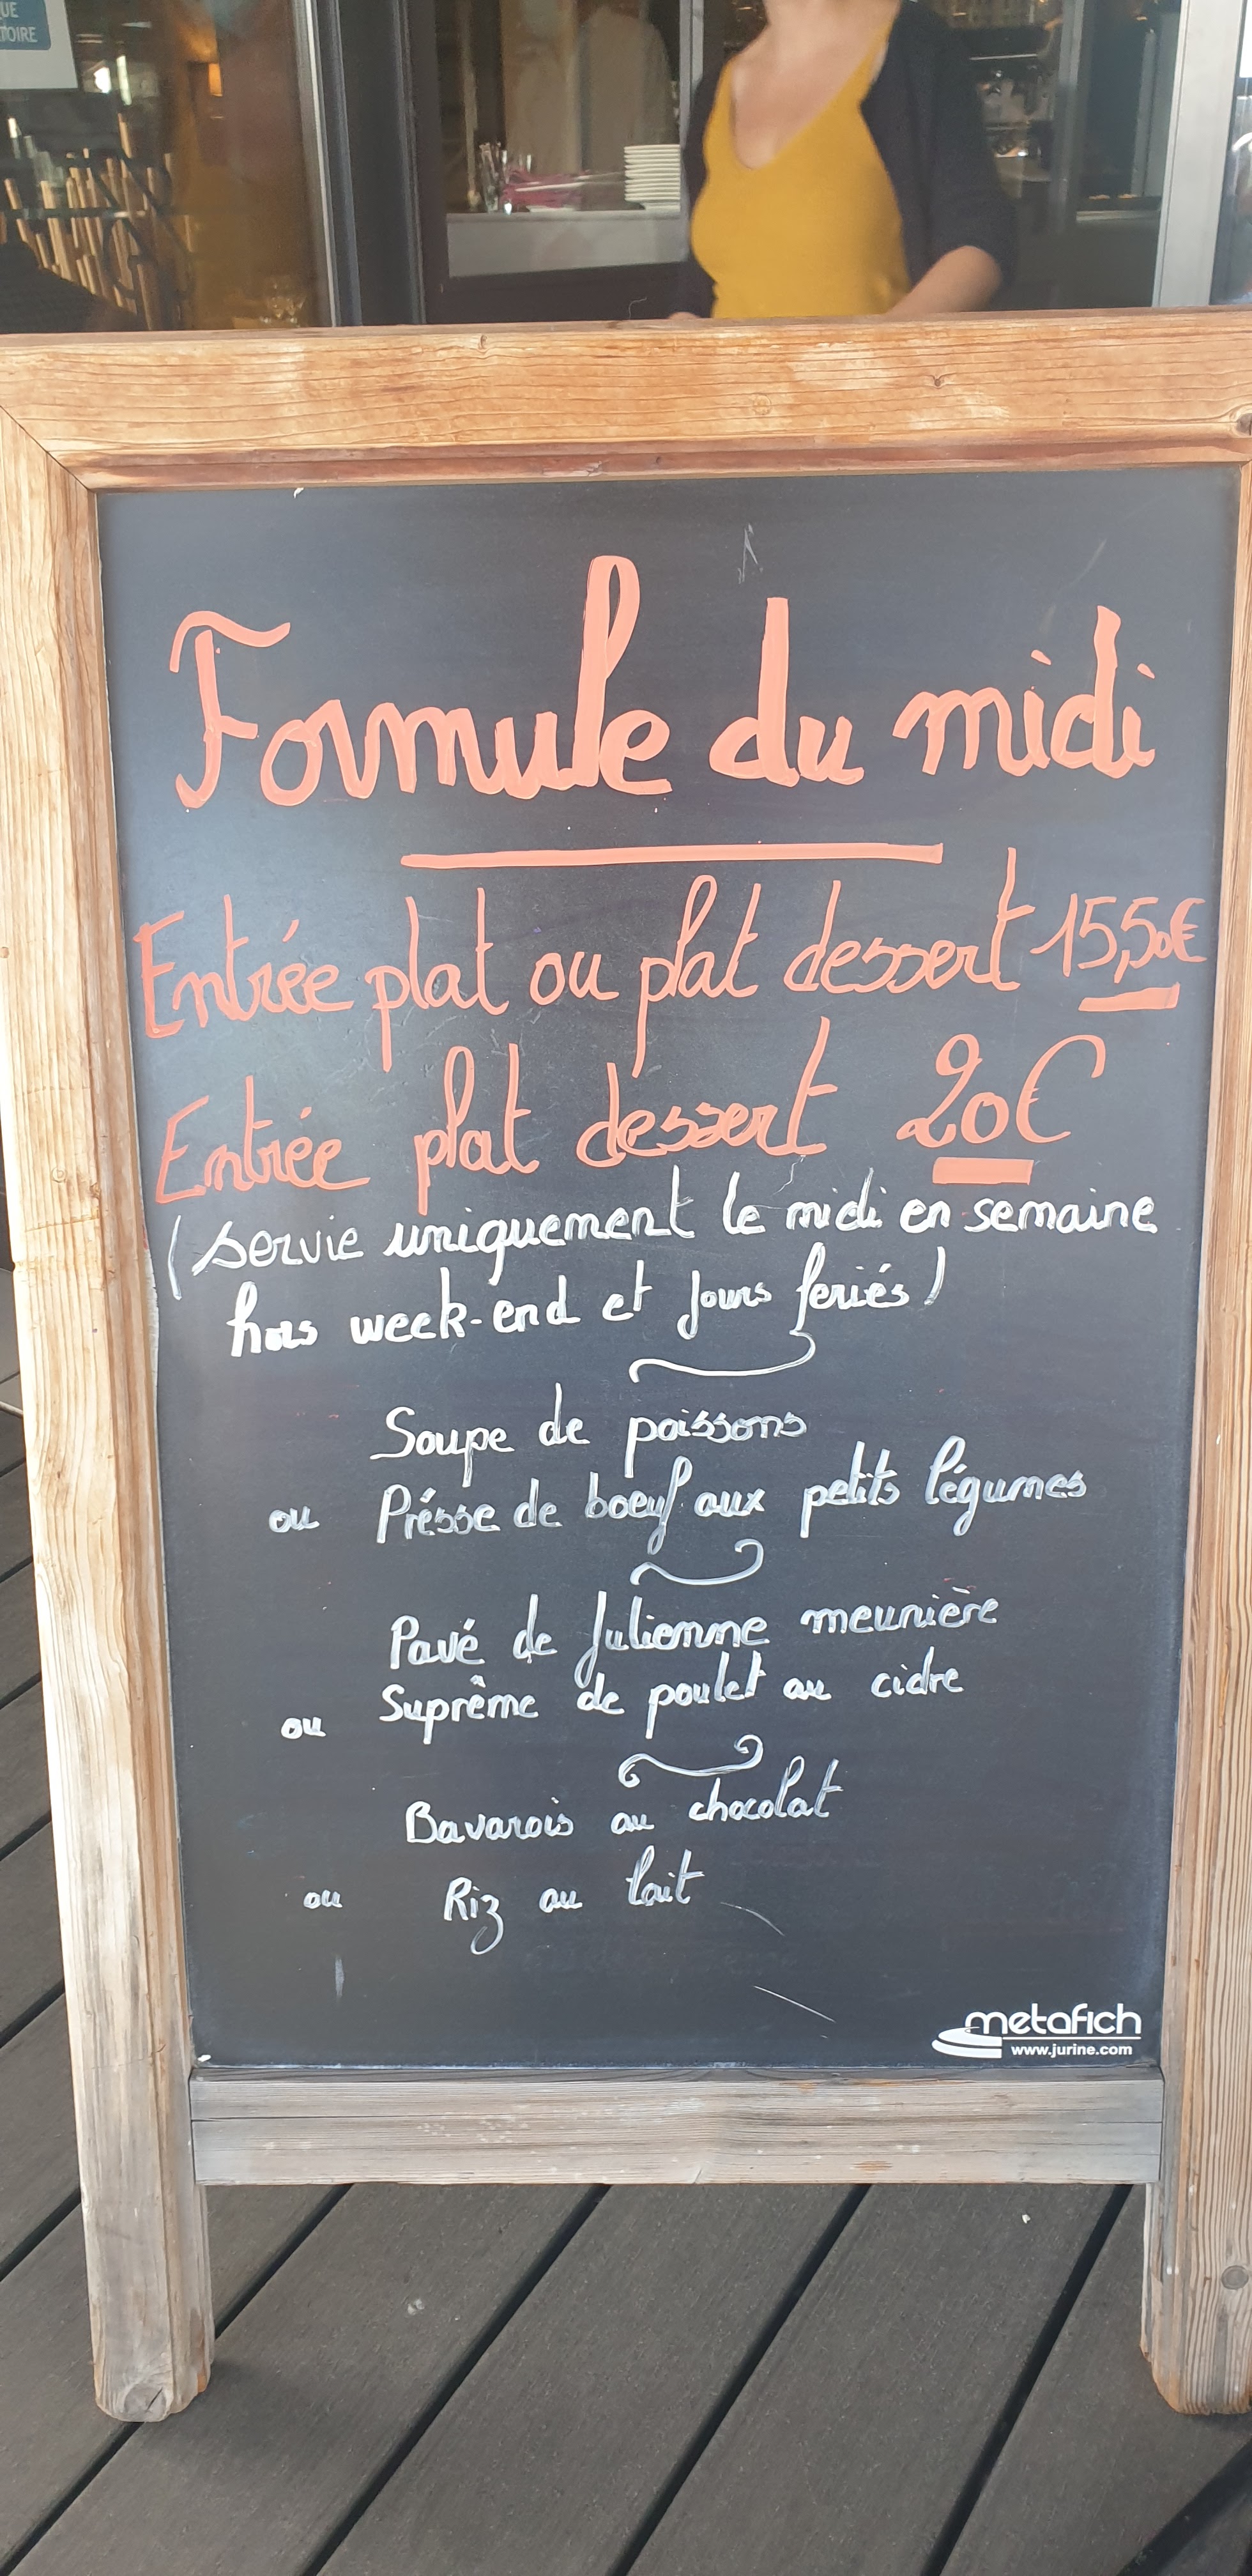 UE
TOIRE
Formule du midi
Entrée plat ou plat dessert 15,50€
Entrée plat dessert 20€
(servie uniquement le midi en semaine
hors week-end et jours feriés)
Soupe de poissons
ou Présse de boeuf aux petits légumes
Pavé de Julienne meunière
ou Suprême de poulet au cidre
Bavarois au chocolat
ou Riz au lait
metafich
www.jurine.com